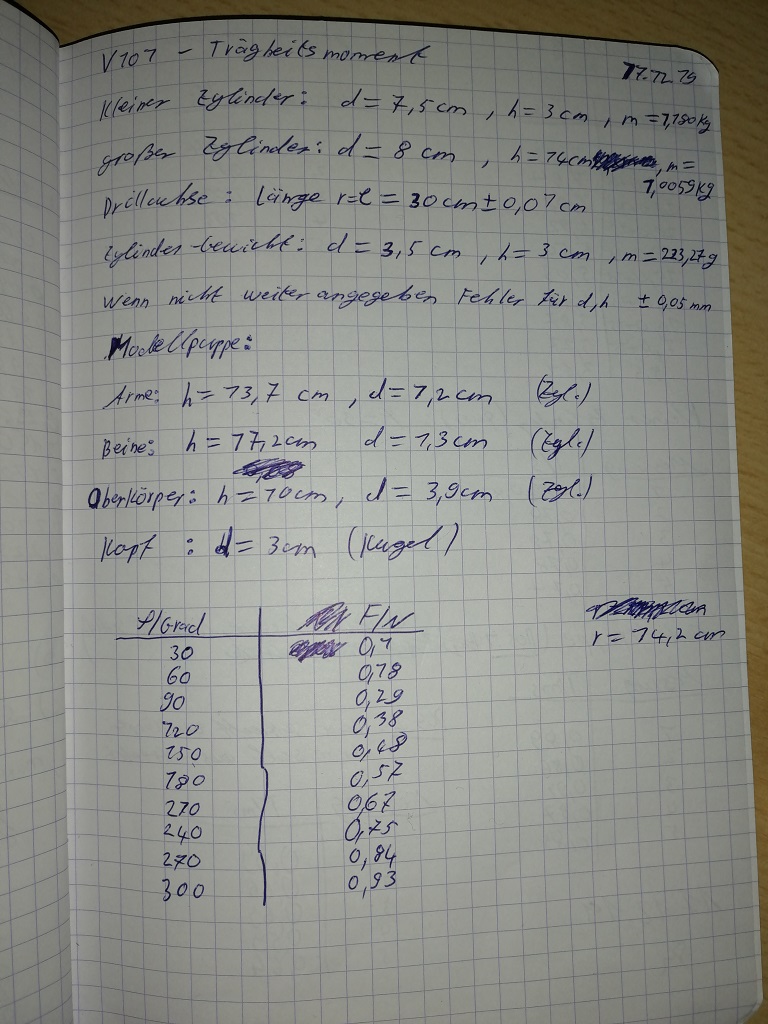 V101 - Trägheitsmoment
17.12.19
Kleiner Zylinder: d = 7,5 cm , h = 3 cm , m = 1,190 kg
großer Zylinder: d = 8 cm , h = 14 cm , m =
1,0059 kg
Drillachse : Länge r=l = 30 cm ± 0,01 cm
Zylinder-Gewicht: d = 3,5 cm , h = 3 cm , m = 223,27 g
Wenn nicht weiter angegeben Fehler für d,h ± 0,05 mm
Modellpuppe:
Arme: h = 13,7 cm , d = 1,2 cm (Zyl.)
Beine: h = 17,2 cm d = 1,3 cm (Zyl.)
Oberkörper: h = 10 cm , d = 3,9 cm (Zyl.)
Kopf : d = 3 cm (Kugel)
φ/Grad F/N
r = 14,2 cm
30 0,1
60 0,18
90 0,29
120 0,38
150 0,48
180 0,57
210 0,67
240 0,75
270 0,84
300 0,93